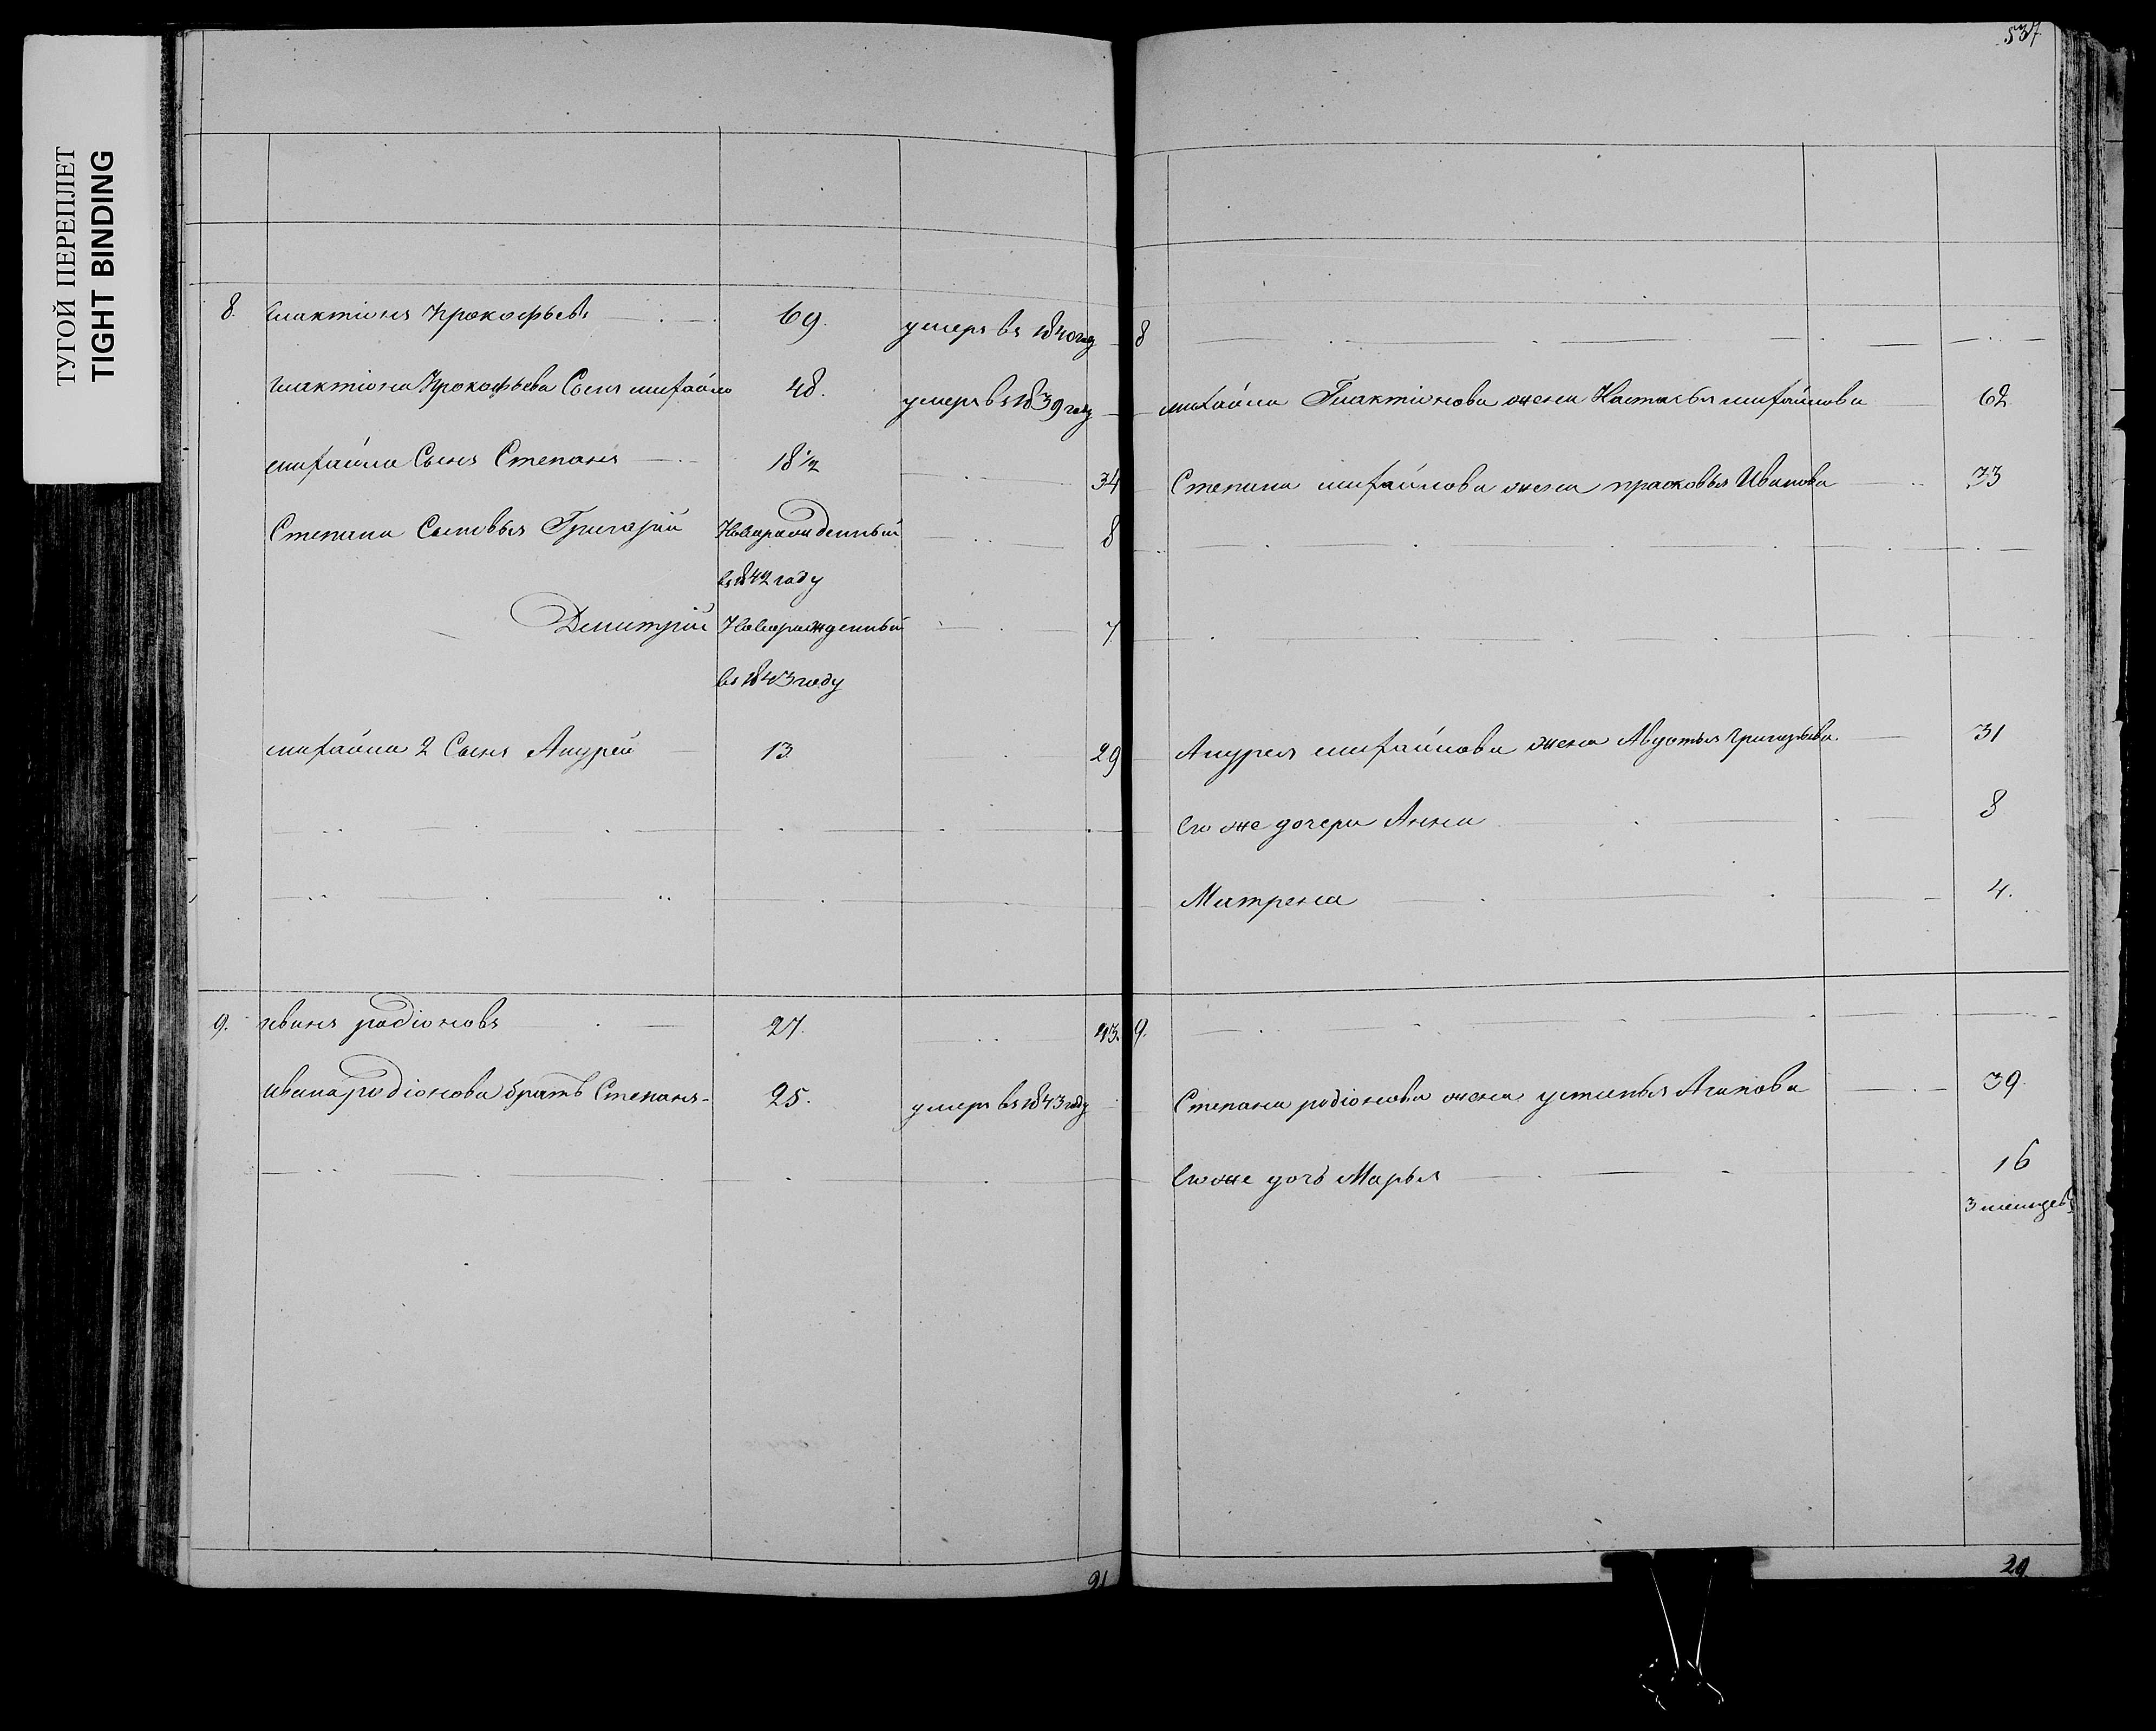 ТУГОЙ ПЕРЕПЛЕТ
TIGHT BINDING
537
8. Глактіонъ Прокофьевъ 69. умеръ въ 1840 году
Глактіона Прокофьева Сынъ михайло 48. умеръ въ 1839 году
михайла Сынъ Степанъ 18 1/2 34
Степана Сыновья Григорій Новорожденный 8
въ 1842 году
Дмитрій Новорожденный 7
въ 1843 году
михайла 2 Сынъ Андрей 13. 29
9. иванъ родіоновъ 27. 43.
ивана родіонова братъ Степанъ 25. умеръ въ 1843 году
8
михайла Глактіонова жена Настасья михайлова 62.
Степана михайлова жена прасковья Иванова 33
Андрея михайлова жена Авдотья григорьева 31
Его же дочери Анна 8
Матрена 4.
9.
Степана родіонова жена устинья Агапова 39.
Его же дочь Марья 16
3 месяцевъ
20